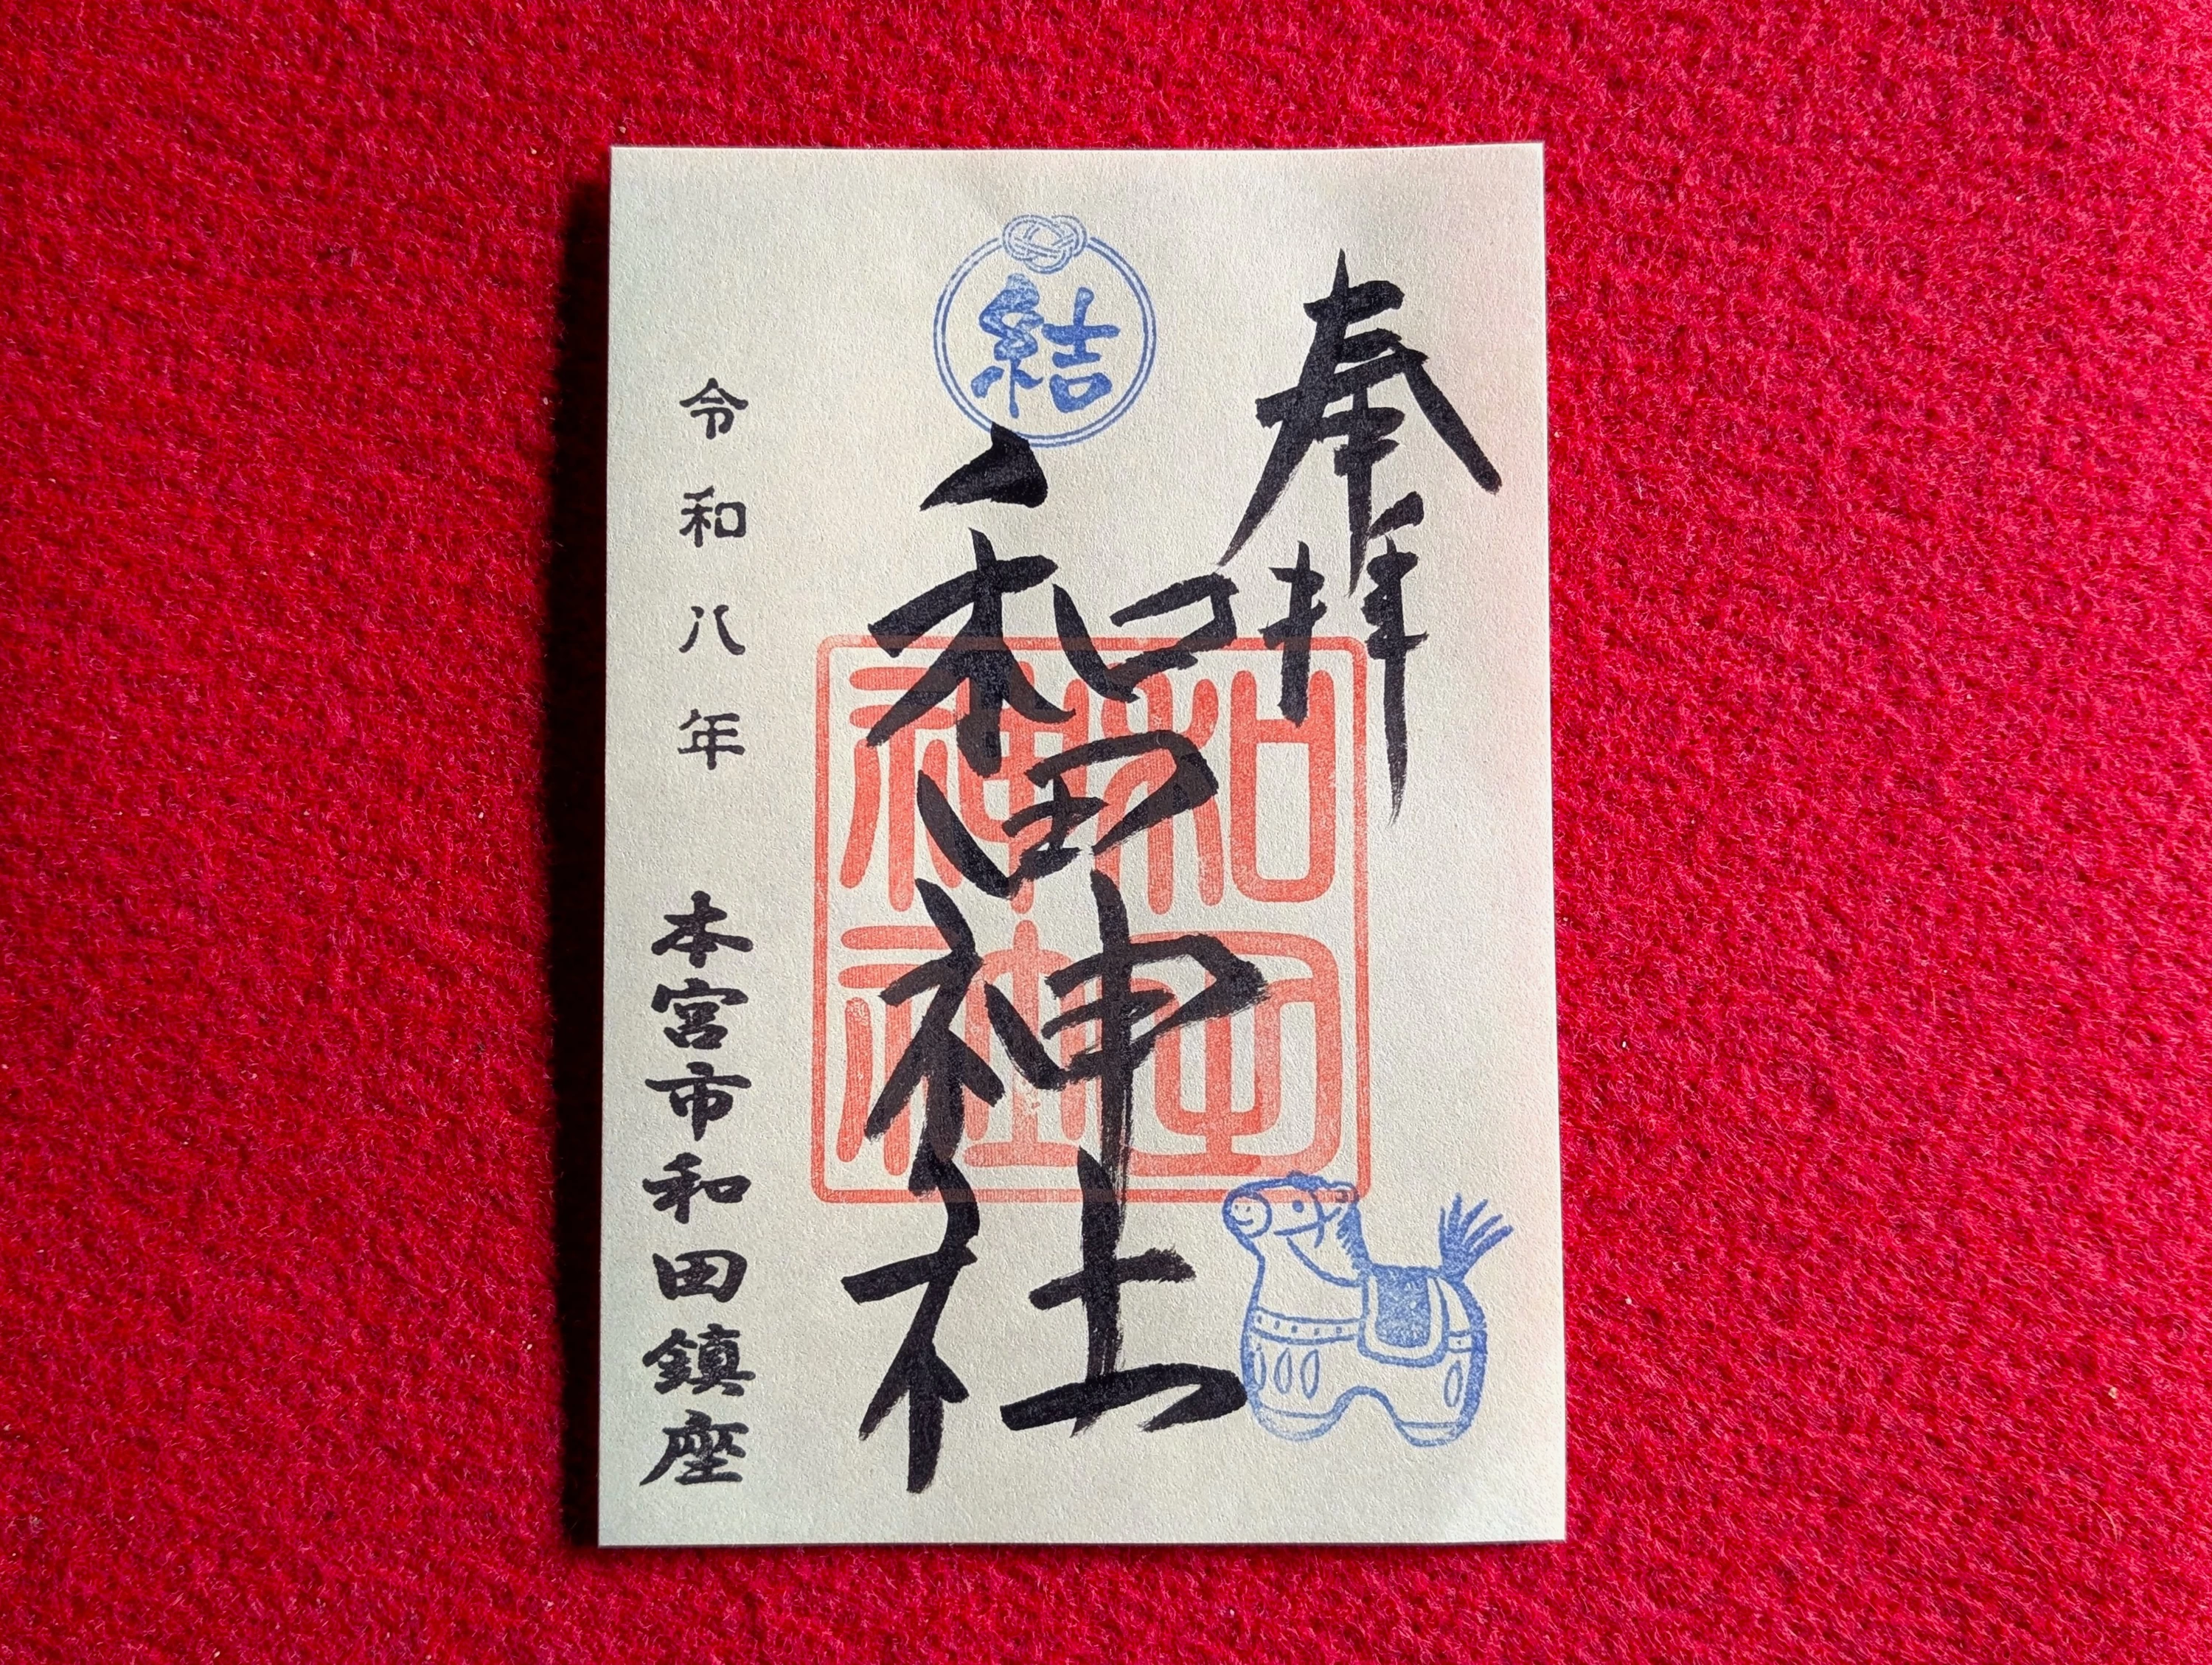 奉拝
結
和田神社
和田神社
令和八年
本宮市和田鎮座